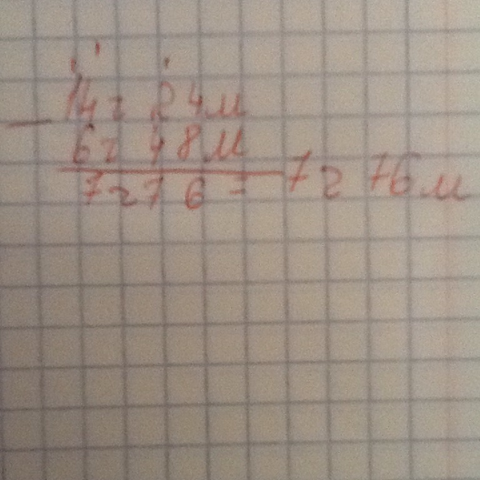 14ч 24м
− 6ч 48м
7ч76 = 7ч 76м